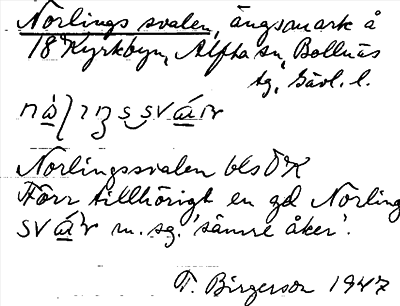 Norlings svalen, ängsmark å
18 Kyrkbyn, Alfta sn, Bollnäs
tg, Gävl. l.
Norlingssvalen bls ÖK
Förr tillhörigt en gd Norling
m. sg. 'sämre åker'.
F. Birgerson 1947